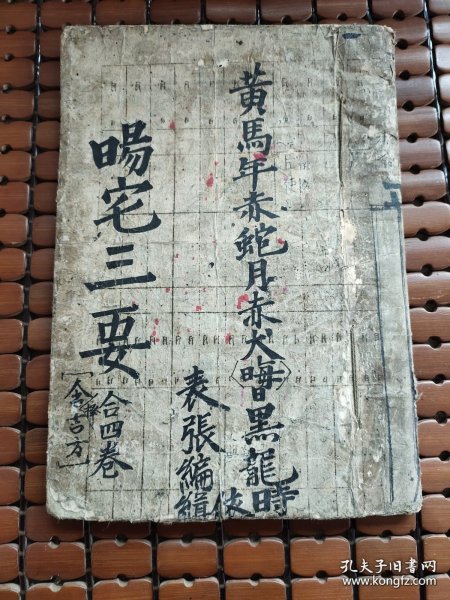 黄馬年赤蛇月赤犬晦日黑龍時
表張編緝
依
暘宅三要
合四卷
孔夫子旧书网
www.kongfz.com